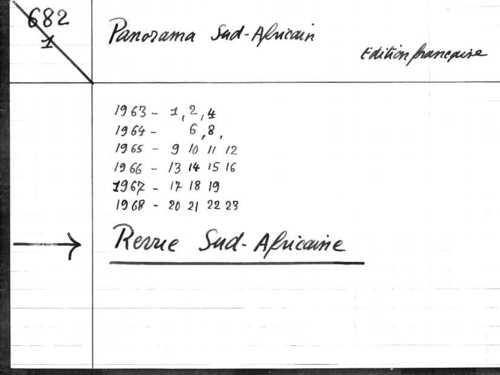 682
1
Panorama Sud-Africain
Edition française
1963 - 1, 2, 4
1964 - 6, 8,
1965 - 9 10 11 12
1966 - 13 14 15 16
1967 - 17 18 19
1968 - 20 21 22 23
→ Revue Sud-Africaine